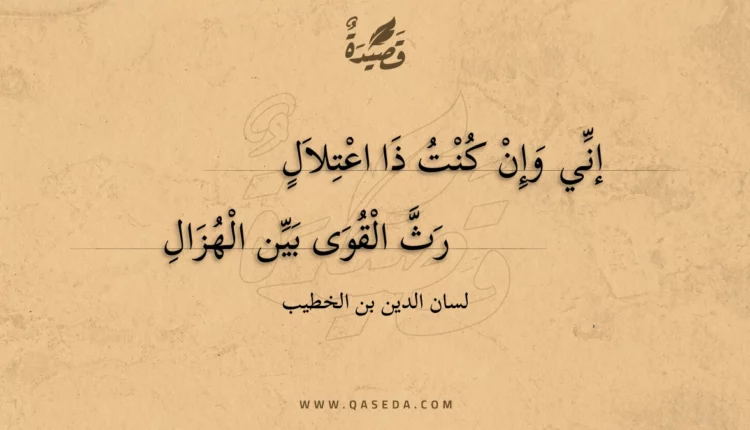 قَصِيْدَةٌ
إنِّي وَإِنْ كُنْتُ ذَا اعْتِلاَلٍ
رَثَّ الْقُوَى بَيِّن الْهُزَالِ
لسان الدين بن الخطيب
WWW.QASEDA.COM